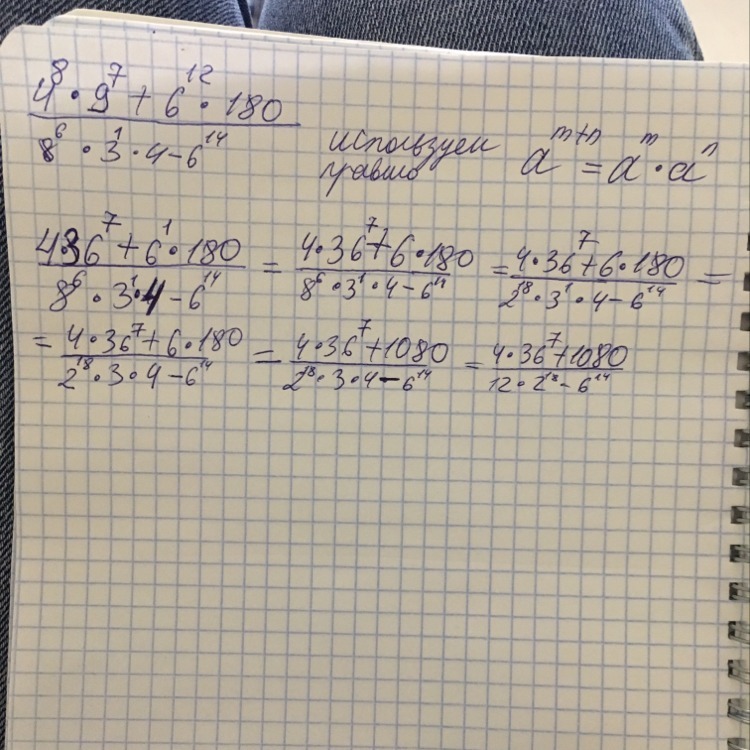 4⁸·9⁷+6¹²·180
8⁶·3¹·4-6¹⁴
используем
правило
aᵐ⁺ⁿ=aᵐ·aⁿ
4·36⁷+6¹·180 / 8⁶·3¹·4-6¹⁴ = 4·36⁷+6·180 / 8⁶·3¹·4-6¹⁴ = 4·36⁷+6·180 / 2¹⁸·3¹·4-6¹⁴ =
= 4·36⁷+6·180 / 2¹⁸·3·4-6¹⁴ = 4·36⁷+1080 / 2¹⁸·3·4-6¹⁴ = 4·36⁷+1080 / 12·2¹⁸-6¹⁴